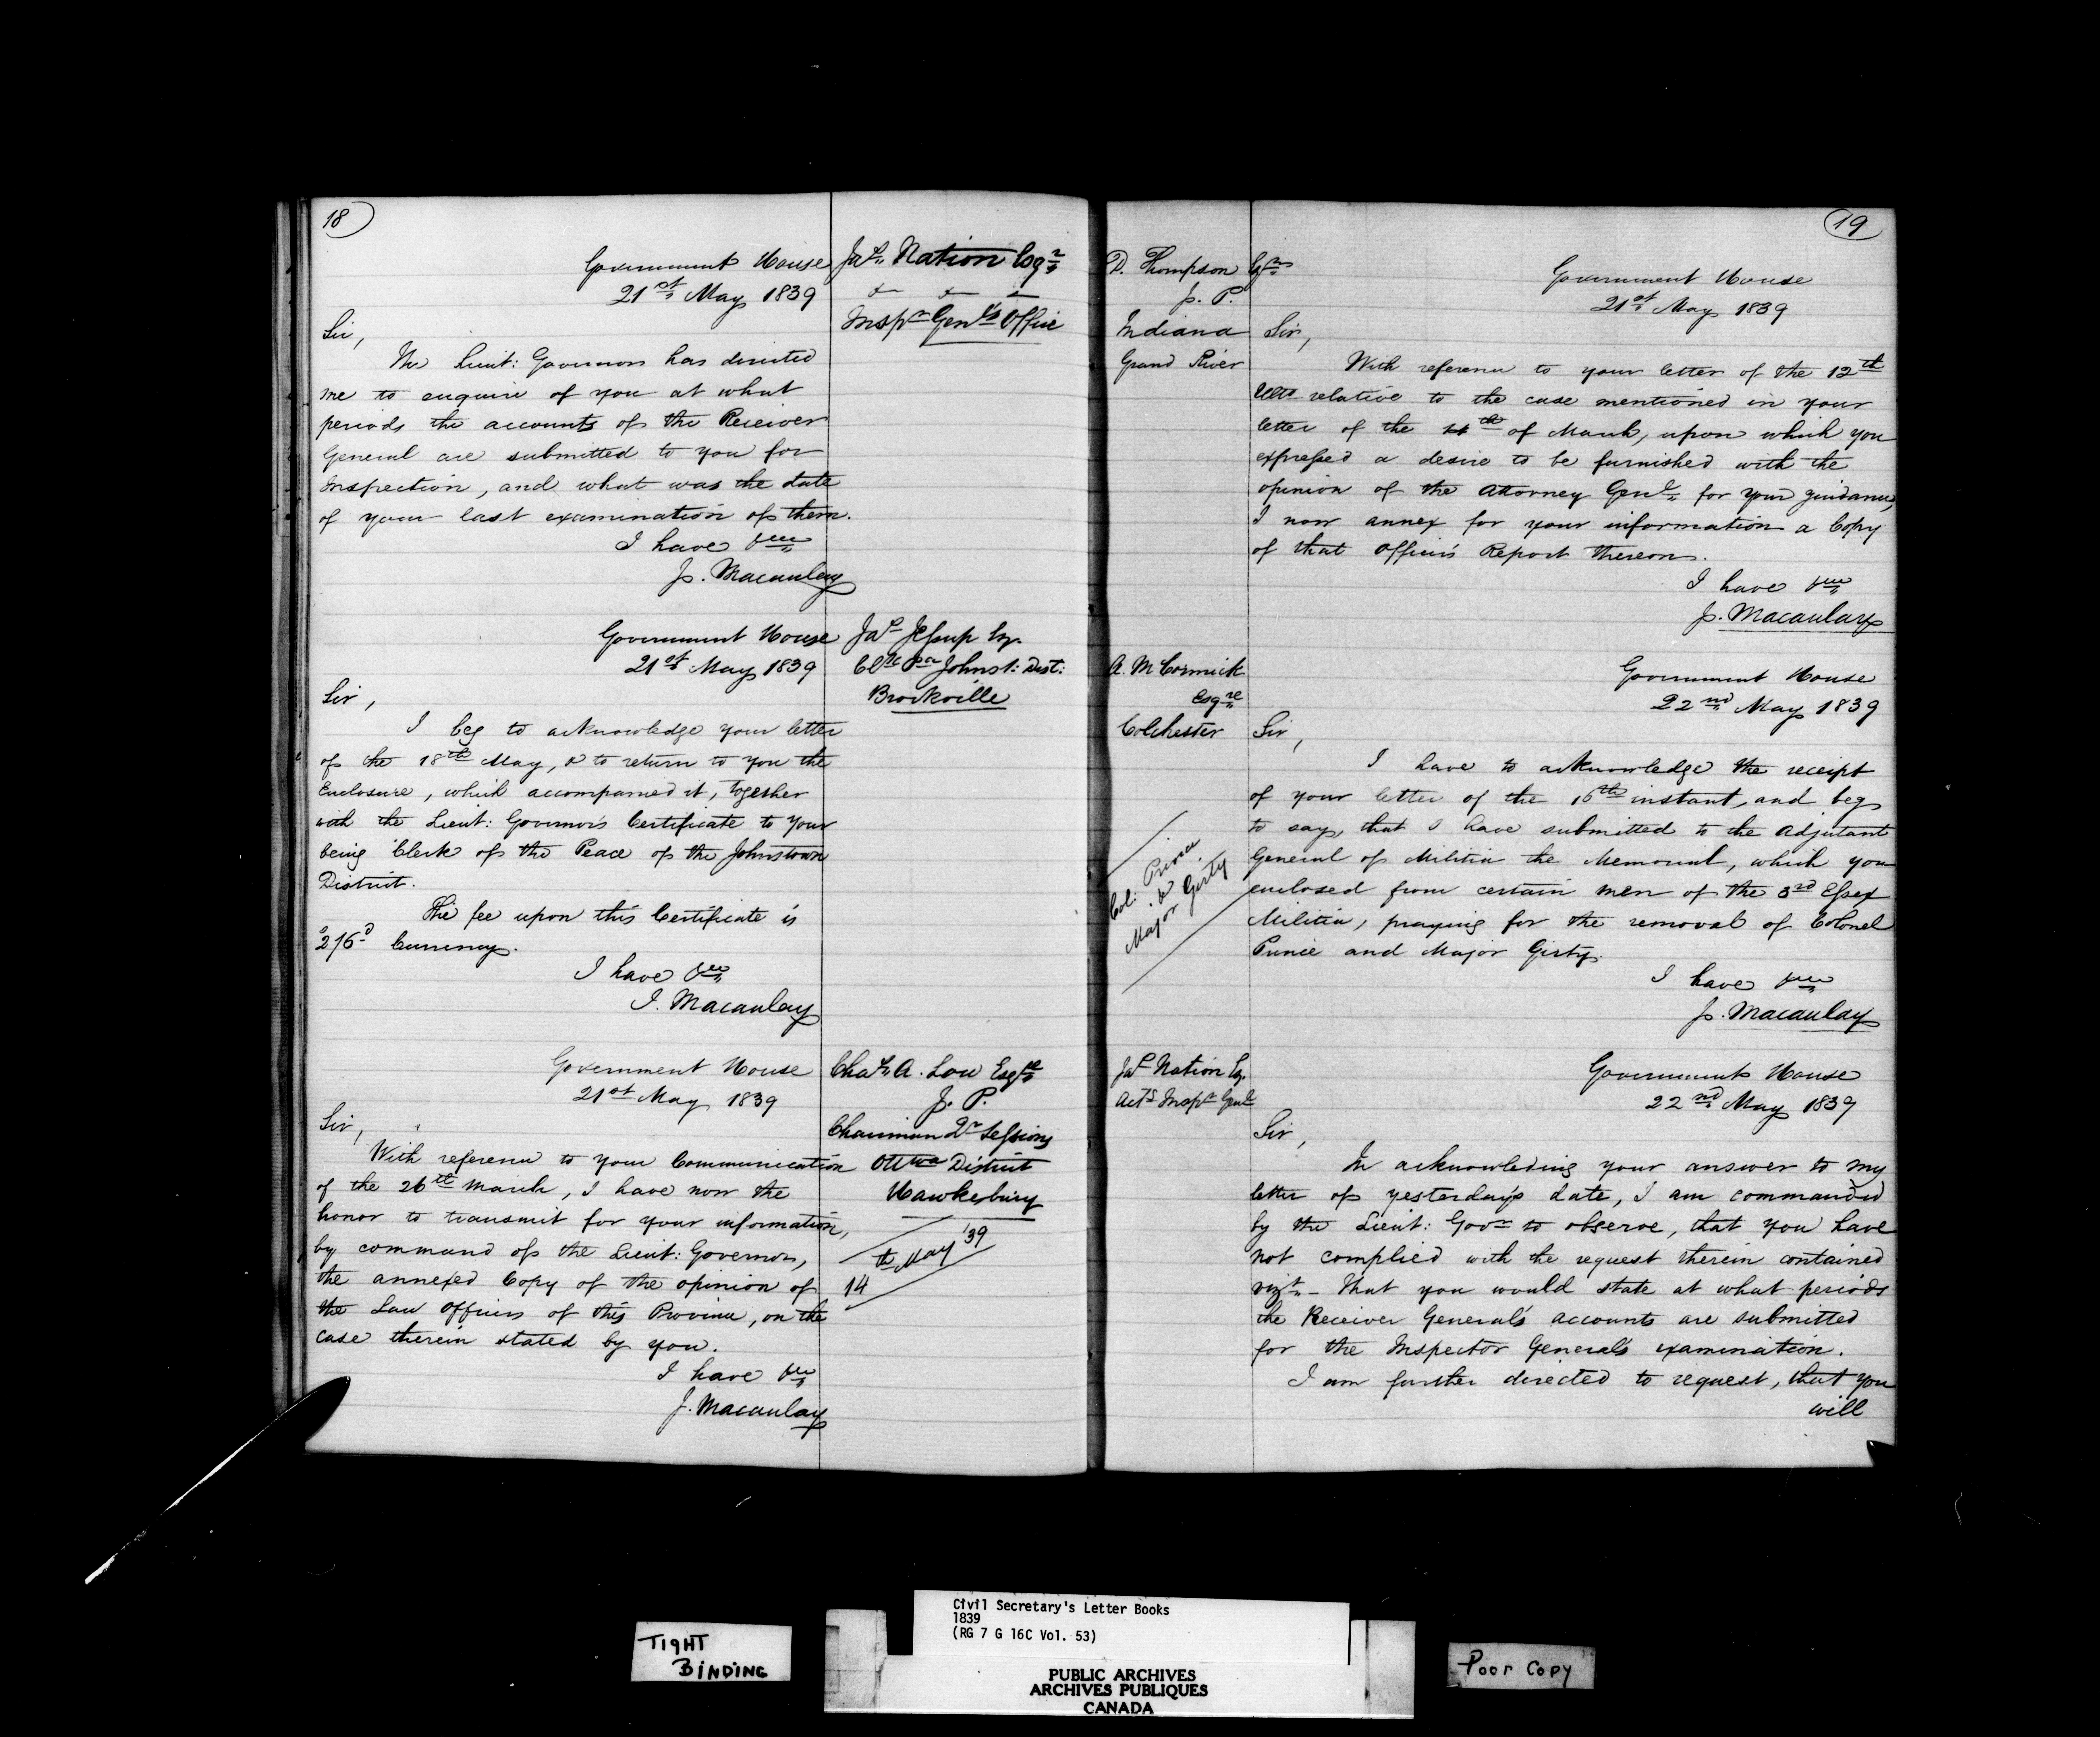 18
Government House
21st May 1839
Jas. Nation Esqr.
&c &c &c
Inspr Genls Office
Sir,
The Lieut: Governor has directed
me to enquire of you at what
periods the accounts of the Receiver
General are submitted to you for
Inspection, and what was the date
of your last examination of them.
I have &c
J. Macaulay
Government House
21st May 1839
Jas Jessup Esq.
Clk Pce Johnst: Dist:
Brockville
Sir,
I beg to acknowledge your letter
of the 18th May, & to return to you the
Enclosure, which accompanied it, together
with the Lieut: Governor's Certificate to your
being Clerk of the Peace of the Johnstown
District.
The fee upon this Certificate is
2s/6d Currency.
I have &c
J. Macaulay
Government House
21st May 1839
Chas. A. Low Esqre
J. P.
Chairman Qr Sessions
Ottwa District
Hawkesbury
14th May '39
Sir,
With reference to your Communication
of the 26th March, I have now the
honor to transmit for your information,
by command of the Lieut: Governor,
the annexed Copy of the opinion of
the Law Officers of this Province, on the
case therein stated by you.
I have &c
J. Macaulay
19
D. Thompson Esqre
J. P.
Indiana
Grand River
Government House
21st May 1839
Sir,
With reference to your letter of the 12th
Ulto relative to the case mentioned in your
letter of the th of March, upon which you
expressed a desire to be furnished with the
opinion of the Attorney Genl. for your guidance,
I now annex for your information a Copy
of that Officer's Report thereon.
I have &c
J. Macaulay
A. McCormick
Esqre
Colchester
Government House
22nd May 1839
Sir,
I have to acknowledge the receipt
of your letter of the 16th instant, and beg
to say, that I have submitted to the Adjutant
General of Militia the Memorial, which you
enclosed from certain men of the 3rd Essex
Militia, praying for the removal of Colonel
Prince and Major Girty.
Col: Prince
&
Major Girty
I have &c
J. Macaulay
Jas Nation Esq.
Actg Inspr Genl
Government House
22nd May 1839
Sir,
In acknowleding your answer to my
letter of yesterday's date, I am commanded
by the Lieut: Govr to observe, that you have
not complied with the request therein contained
vizt. – That you would state at what periods
the Receiver General's accounts are submitted
for the Inspector General's examination.
I am further directed to request, that you
will
TIGHT
BINDING
Civil Secretary's Letter Books
1839
(RG 7 G 16C Vol. 53)
PUBLIC ARCHIVES
ARCHIVES PUBLIQUES
CANADA
Poor Copy